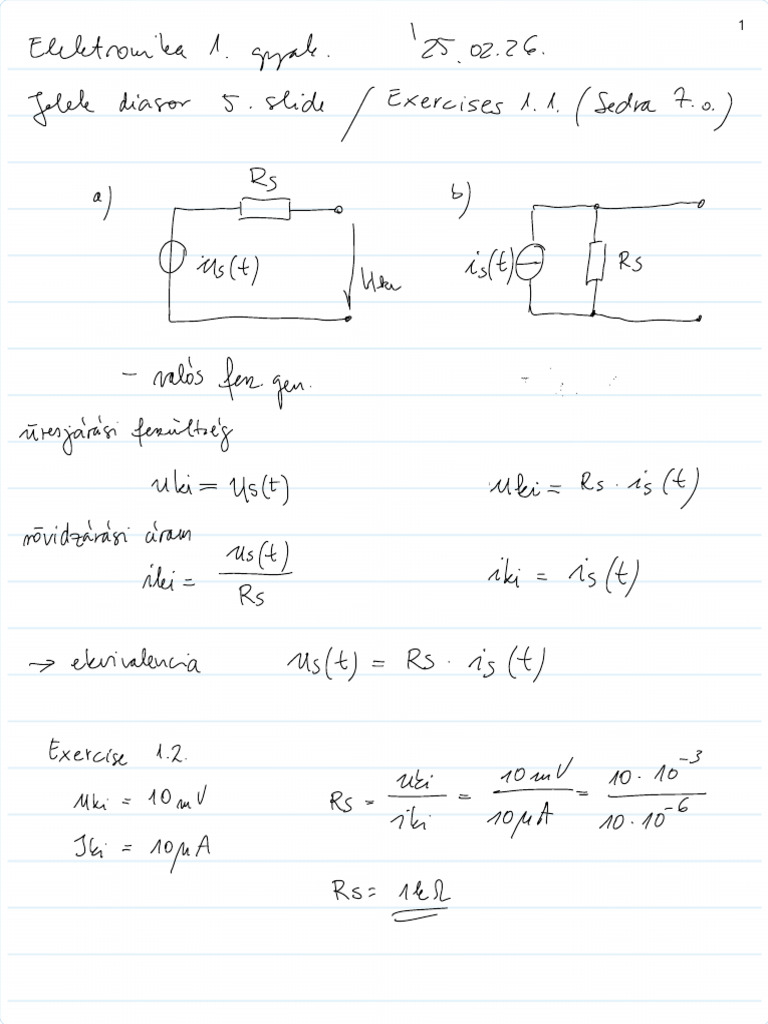 1
Elektronika 1. gyak. '25.02.26.
Jelek diasor 5. slide / Exercises 1.1. (Sedra 7.o.)
a) Rs b)
us(t) uki is(t) Rs
- valós fesz. gen.
üresjárási feszültség
uki = us(t) uki = Rs · is(t)
rövidzárási áram
iki = us(t) / Rs iki = is(t)
→ ekvivalencia us(t) = Rs · is(t)
Exercise 1.2.
uki = 10mV Rs = uki / iki = 10mV / 10μA = 10·10⁻³ / 10·10⁻⁶
Iki = 10μA
Rs = 1kΩ